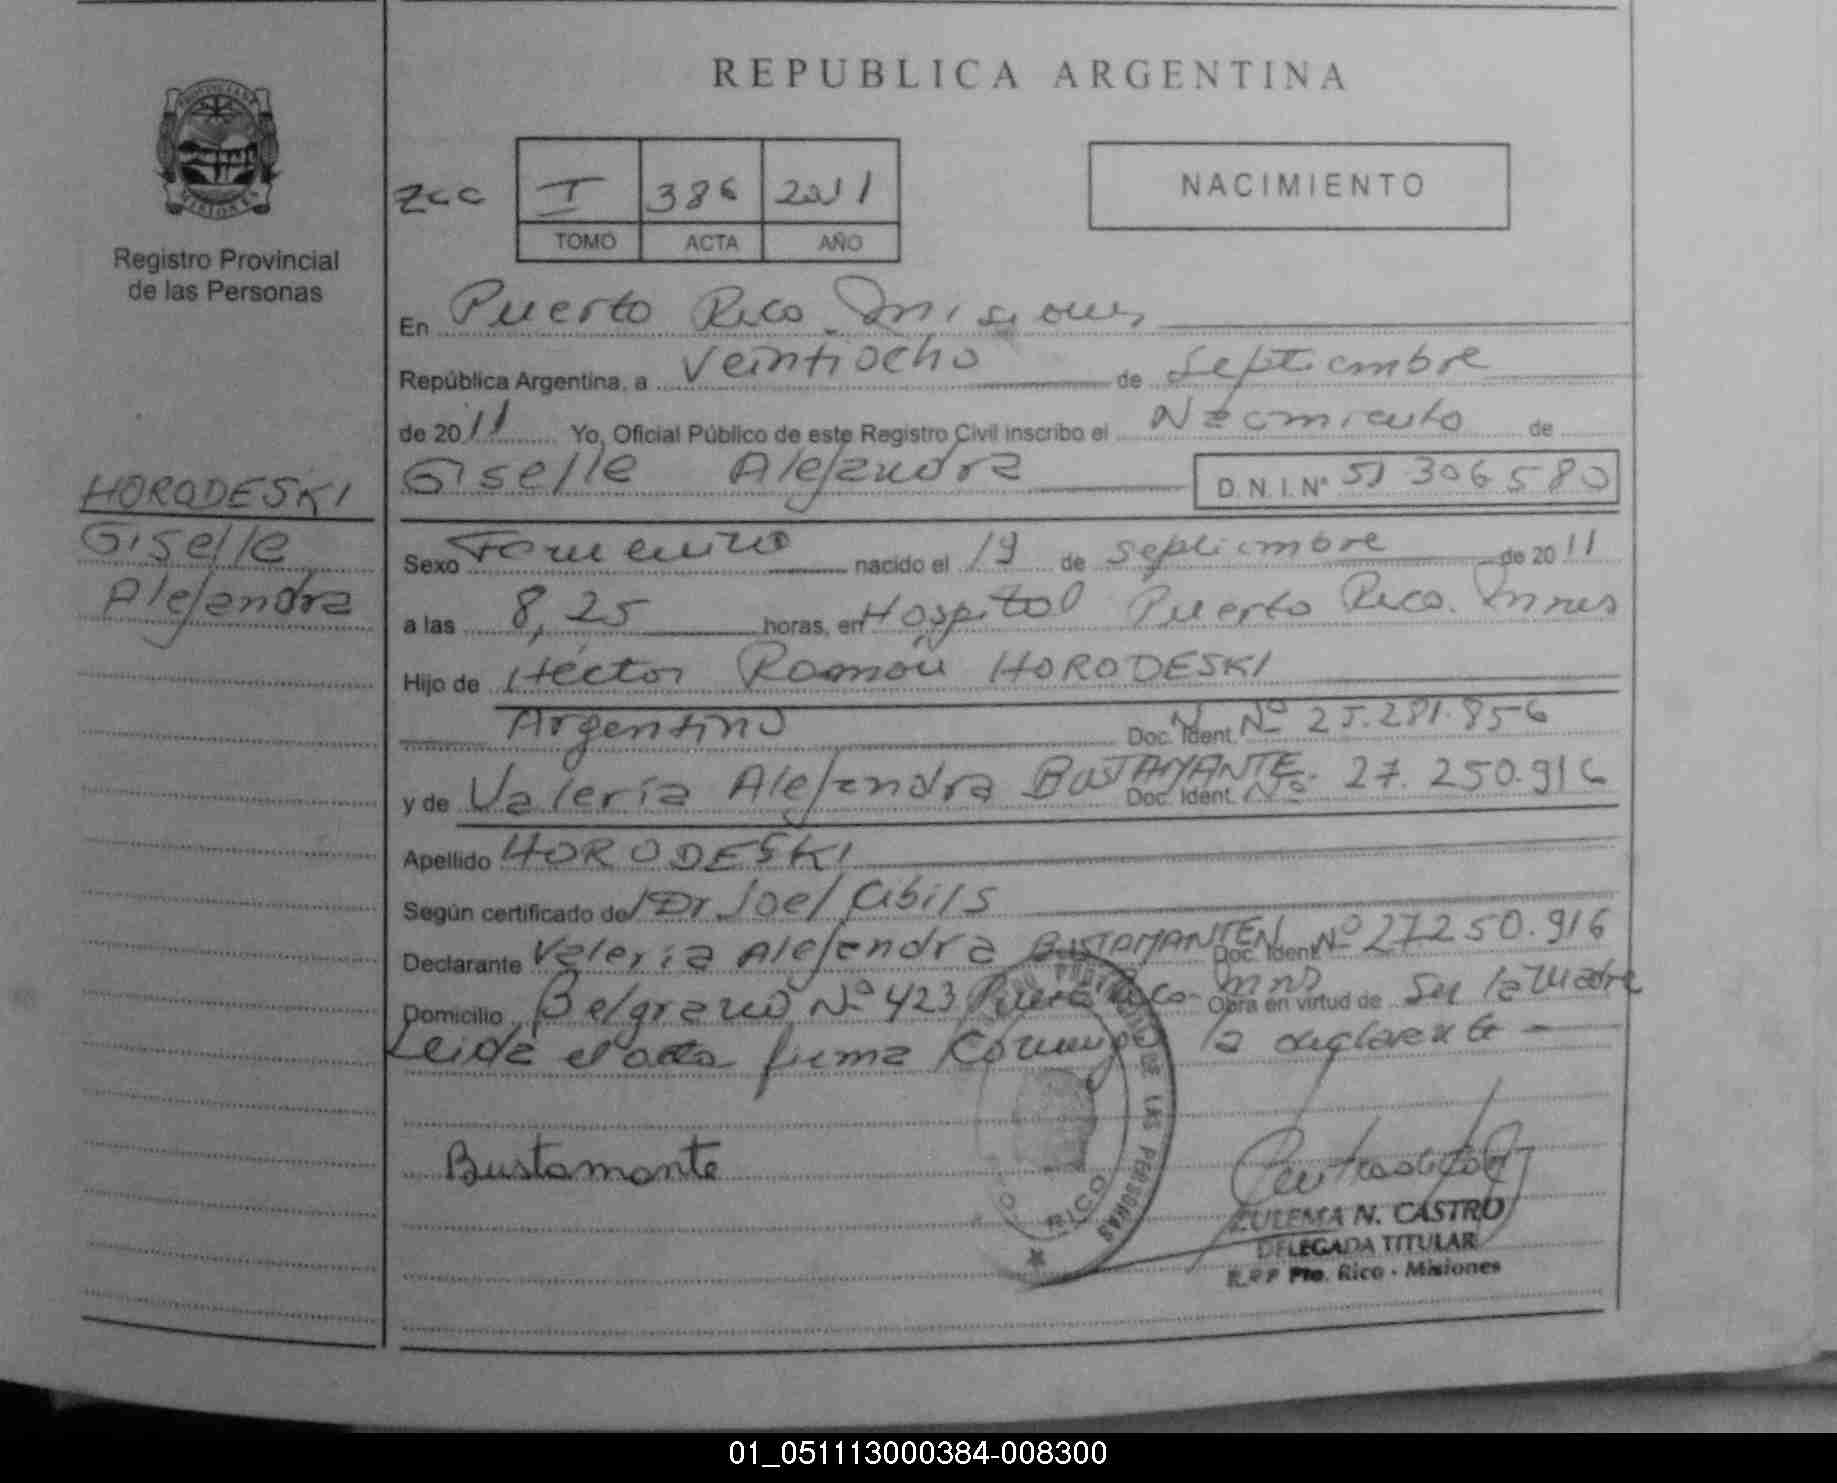 REPUBLICA ARGENTINA
NACIMIENTO
I 386 2011
TOMO ACTA AÑO
MISIONES
Registro Provincial
de las Personas
HORODESKI
Giselle
Alejandra
En Puerto Rico Misiones
República Argentina, a Veintiocho de Septiembre
de 2011 Yo, Oficial Público de este Registro Civil inscribo el Nacimiento de
Giselle Alejandra D.N.I.Nº 51 306 580
Sexo Femenino nacido el 19 de septiembre de 2011
a las 8,25 horas, en Hospital Puerto Rico. Mnes
Hijo de Héctor Ramón HORODESKI
Argentino Doc. Ident. Nº 25.281.856
y de Valeria Alejandra BUSTAMANTE Doc. Ident. Nº 27.250.916
Apellido HORODESKI
Según certificado de Dr Joel
Declarante Valeria Alejandra BUSTAMANTE Doc. Ident. Nº 27250.916
Domicilio Belgrano Nº 423 Puerto Rico Mns Obra en virtud de Ser la Madre
Leida el acta firma Conmigo la declarante
Bustamante
DE LAS PERSONAS
RICO
ZULEMA N. CASTRO
DELEGADA TITULAR
R.P.P Pto. Rico - Misiones
01_051113000384-008300